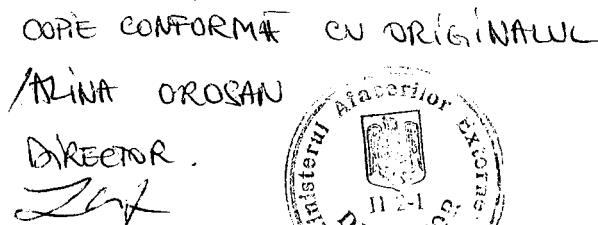 COPIE CONFORMĂ CU ORIGINALUL
/ALINA OROSAN
DIRECTOR.
Ministerul Afacerilor Externe
II 2-1